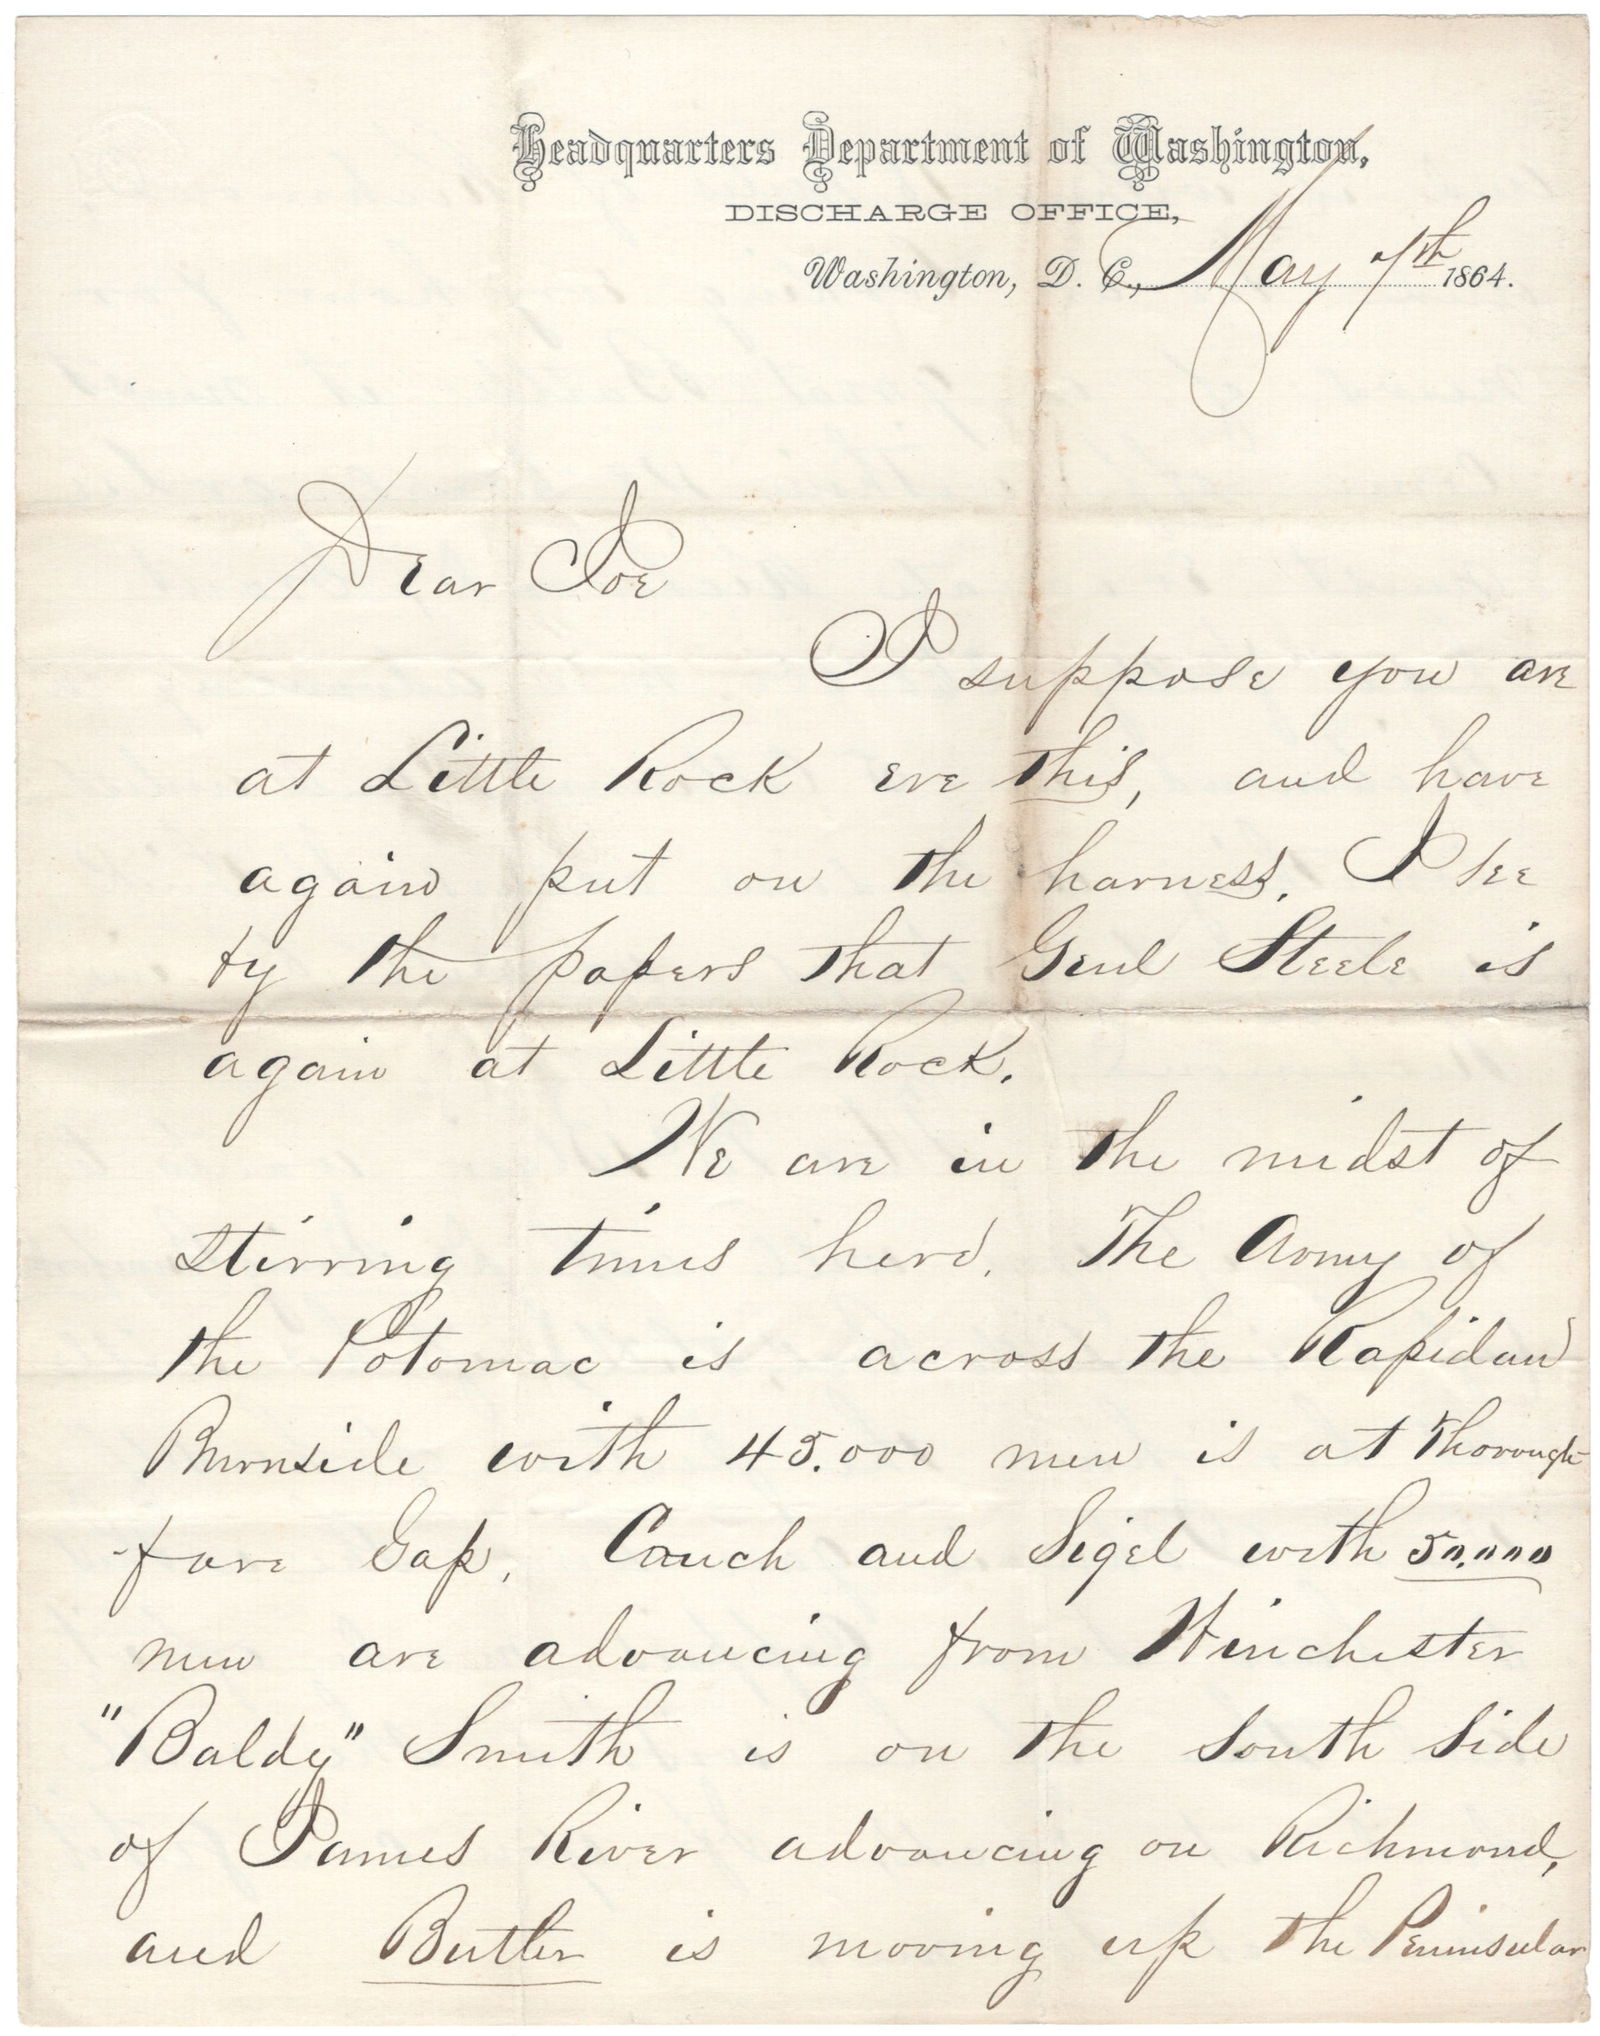 Headquarters Department of Washington,
DISCHARGE OFFICE,
Washington, D. C., May 7th 1864.
Dear Joe
I suppose you are
at Little Rock ere this, and have
again put on the harness. I see
by the papers that Genl Steele is
again at Little Rock.
We are in the midst of
stirring times here. The Army of
the Potomac is across the Rapidan
Burnside with 45.000 men is at Thorough-
-fare Gap. Couch and Sigel with 50.000
men are advancing from Winchester
"Baldy" Smith is on the south side
of James River advancing on Richmond,
and Butler is moving up the Peninsular